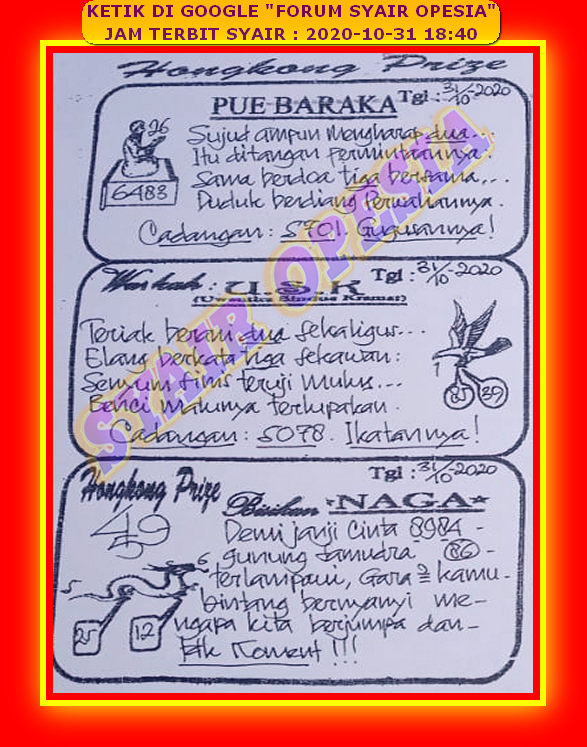 KETIK DI GOOGLE "FORUM SYAIR OPESIA"
JAM TERBIT SYAIR : 2020-10-31 18:40
Hongkong Prize
PUE BARAKA Tgl : 31/10-2020
26
6483
Sujud ampun mengharap dua...
Itu ditangan permintaannya.
Sama berdoa tiga bersama...
Duduk berdiang
Cadangan : 5701. Gugusannya!
SYAIR OPESIA
Warkah : U.S.K Tgl : 31/10-2020
Teriak berani dua sekaligus...
Elang berkata tiga sekawan :
Senyum tinis teruji mulus...
Benci makinya terlupakan.
1
85 39
Cadangan : 5078. Ikatannya!
Tgl : 31/10-2020
Hongkong Prize
Bisikan *NAGA*
Demi janji Cinta 8984 -
gunung Samudra 86 -
terlampaui, Gara2 kamu -
bintang bernyanyi me-
ngapa kita berjumpa dan -
Moment !!!
5
6
25 12